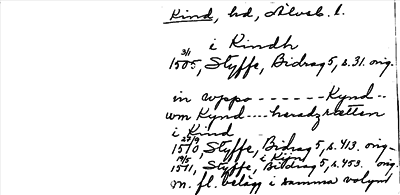 Kind, hd, Älvsb. l.
i Kindh
3/1
1505, Styffe, Bidrag 5, s. 31. orig.
in wppo - - - - - - - Kynd - -
wm Kynd - - - - heradzrætten
i Kind
29/9
1510, Styffe, Bidrag 5, s. 413. orig.
i Kijn
19/5
1511, Styffe, Bidrag 5, s. 453. orig.
m. fl. belägg i samma volym